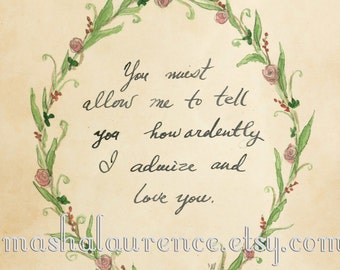 You must
allow me to tell
you how ardently
I admire and
love you.
mashalaurence.etsy.com